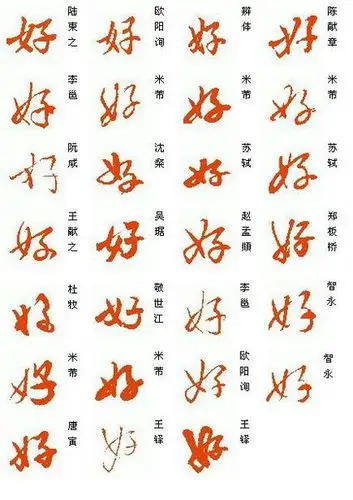 好 陆柬之 好 欧阳询 好 辨体 好 陈献章
好 李邕 好 米芾 好 米芾 好 米芾
好 阮咸 好 沈粲 好 苏轼 好 苏轼
好 王献之 好 吴琚 好 赵孟頫 好 郑板桥
好 杜牧 好 敬世江 好 李邕 好 智永
好 米芾 好 米芾 好 欧阳询 好 智永
好 唐寅 好 王铎 好 王铎